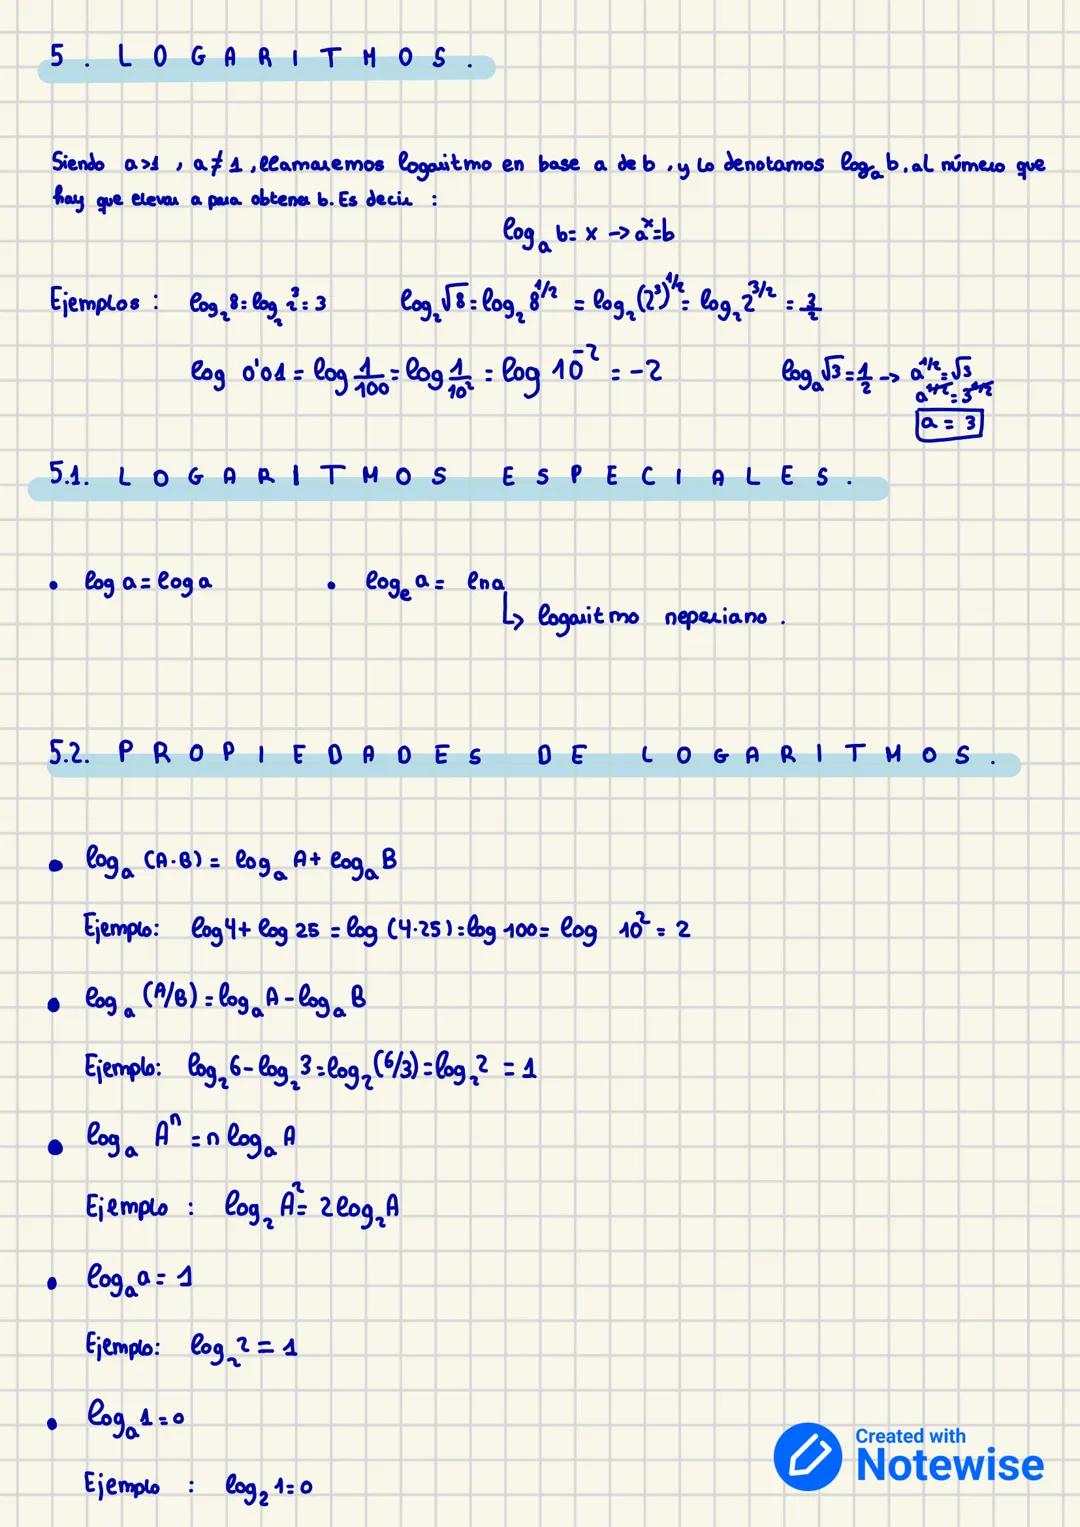 5. LOGARITMOS.
Siendo a>1, a≠1, llamaremos logaritmo en base a de b, y lo denotamos logₐ b, al número que
hay que elevar a para obtener b. Es decir :
logₐ b = x -> aˣ=b
Ejemplos : log₂ 8 = log₂ 2³ = 3 log₂ √8 = log₂ 8^1/2 = log₂ (2³)^1/2 = log₂ 2^3/2 = 3/2
log 0'01 = log 1/100 = log 1/10² = log 10⁻² = -2 logₐ √3 = 1/2 -> a^1/2 = √3
a^1/2 = 3^1/2
a = 3
5.1. LOGARITMOS ESPECIALES.
• log a = log a • logₑ a = ln a
↳ logaritmo neperiano.
5.2. PROPIEDADES DE LOGARITMOS.
• logₐ (A·B) = logₐ A + logₐ B
Ejemplo: log 4 + log 25 = log (4·25) = log 100 = log 10² = 2
• logₐ (A/B) = logₐ A - logₐ B
Ejemplo: log₂ 6 - log₂ 3 = log₂ (6/3) = log₂ 2 = 1
• logₐ Aⁿ = n logₐ A
Ejemplo : log₂ A² = 2 log₂ A
• logₐ a = 1
Ejemplo: log₂ 2 = 1
• logₐ 1 = 0
Ejemplo : log₂ 1 = 0
Created with
Notewise